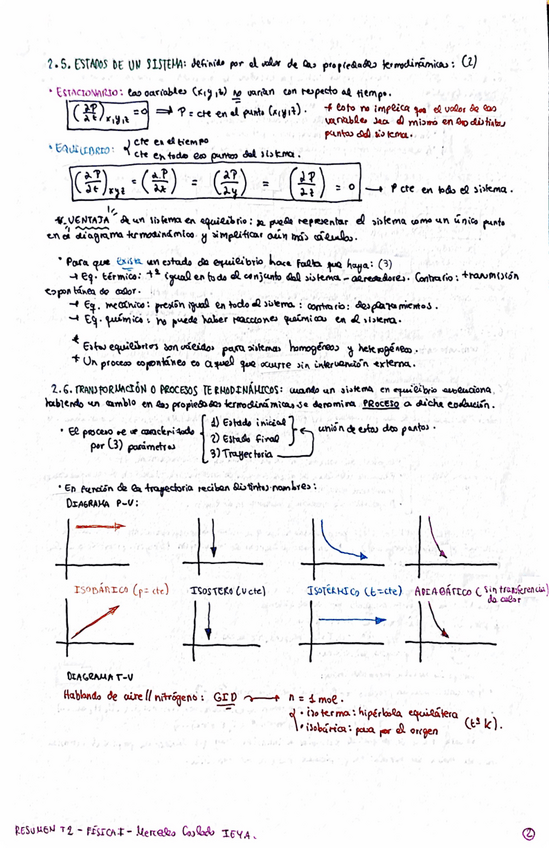 2.5. ESTADOS DE UN SISTEMA: definido por el valor de las propiedades termodinámicas: (2)
* ESTACIONARIO: las variables (x,y,z) no varían con respecto al tiempo.
(∂P/∂t)x,y,z = 0 ⟹ P = cte en el punto (x,y,z).
* Esto no implica que el valor de las
variables sea el mismo en los distintos
puntos del sistema.
* EQUILIBRIO: cte en el tiempo
cte en todos los puntos del sistema.
(∂P/∂t)xyz = (∂P/∂t) = (∂P/∂y) = (∂P/∂z) = 0 → P cte en todo el sistema.
VENTAJA de un sistema en equilibrio: se puede representar el sistema como un único punto
en el diagrama termodinámico y simplificar aún más cálculos.
* Para que exista un estado de equilibrio hace falta que haya: (3)
→ Eq. térmico: tª igual en todo el conjunto del sistema - alrededores. Contrario: transmisión
espontánea de calor.
→ Eq. mecánico: presión igual en todo el sistema: contrario: desplazamientos.
→ Eq. químico: no puede haber reacciones químicas en el sistema.
* Estos equilibrios son válidos para sistemas homogéneos y heterogéneos.
* Un proceso espontáneo es aquel que ocurre sin intervención externa.
2.6. TRANSFORMACIÓN O PROCESOS TERMODINÁMICOS: cuando un sistema en equilibrio evoluciona
habiendo un cambio en las propiedades termodinámicas se denomina PROCESO a dicha evolución.
* El proceso se ve caracterizado
por (3) parámetros
1) Estado inicial
2) Estado final
3) Trayectoria
unión de estos dos puntos.
* En función de la trayectoria reciben distintos nombres:
DIAGRAMA P-V:
ISOBÁRICO (p=cte) ISOSTERO (v cte) ISOTÉRMICO (t=cte) ADIABÁTICO (sin transferencia)
de calor
DIAGRAMA T-V
Hablando de aire // nitrógeno: GID → n = 1 mol.
• isoterma: hipérbola equilátera
• isobárica: pasa por el origen
(tª k).
RESUMEN T2 - FÍSICA I - Mercedes IEYA.
2